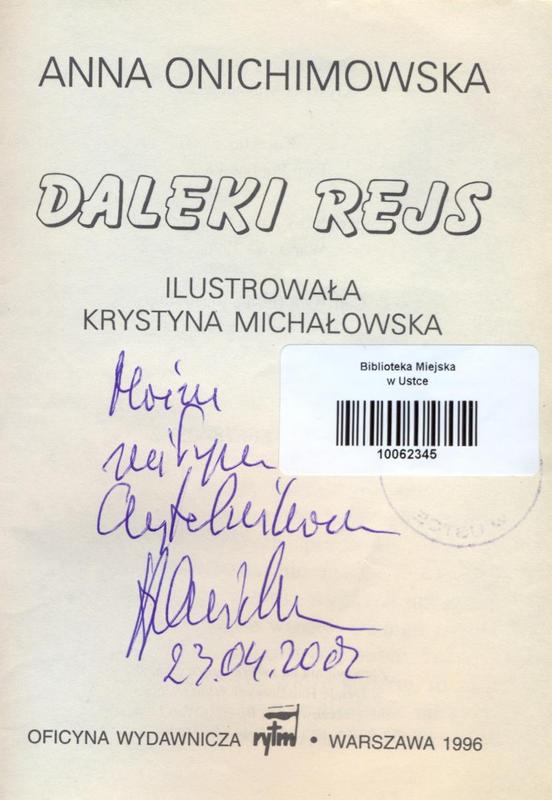 ANNA ONICHIMOWSKA
DALEKI REJS
ILUSTROWAŁA
KRYSTYNA MICHAŁOWSKA
Biblioteka Miejska
w Ustce
10062345
Moim
miłym
Czytelnikom
23.04.2002
W USTCE
OFICYNA WYDAWNICZA rytm • WARSZAWA 1996